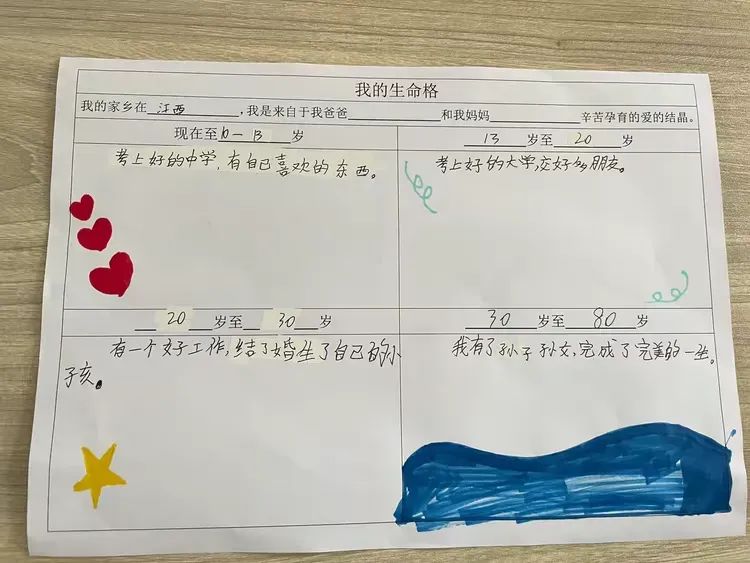 我的生命格
我的家乡在 江西 ,我是来自于我爸爸 和我妈妈 辛苦孕育的爱的结晶。
现在至10-13 岁
13 岁至 20 岁
考上好的中学,有自己喜欢的东西。
考上好的大学,交好多朋友。
20 岁至 30 岁
30 岁至 80 岁
有一个好工作,结了婚生了自己的小
子孩。
我有了孙子孙女,完成了完美的一生。